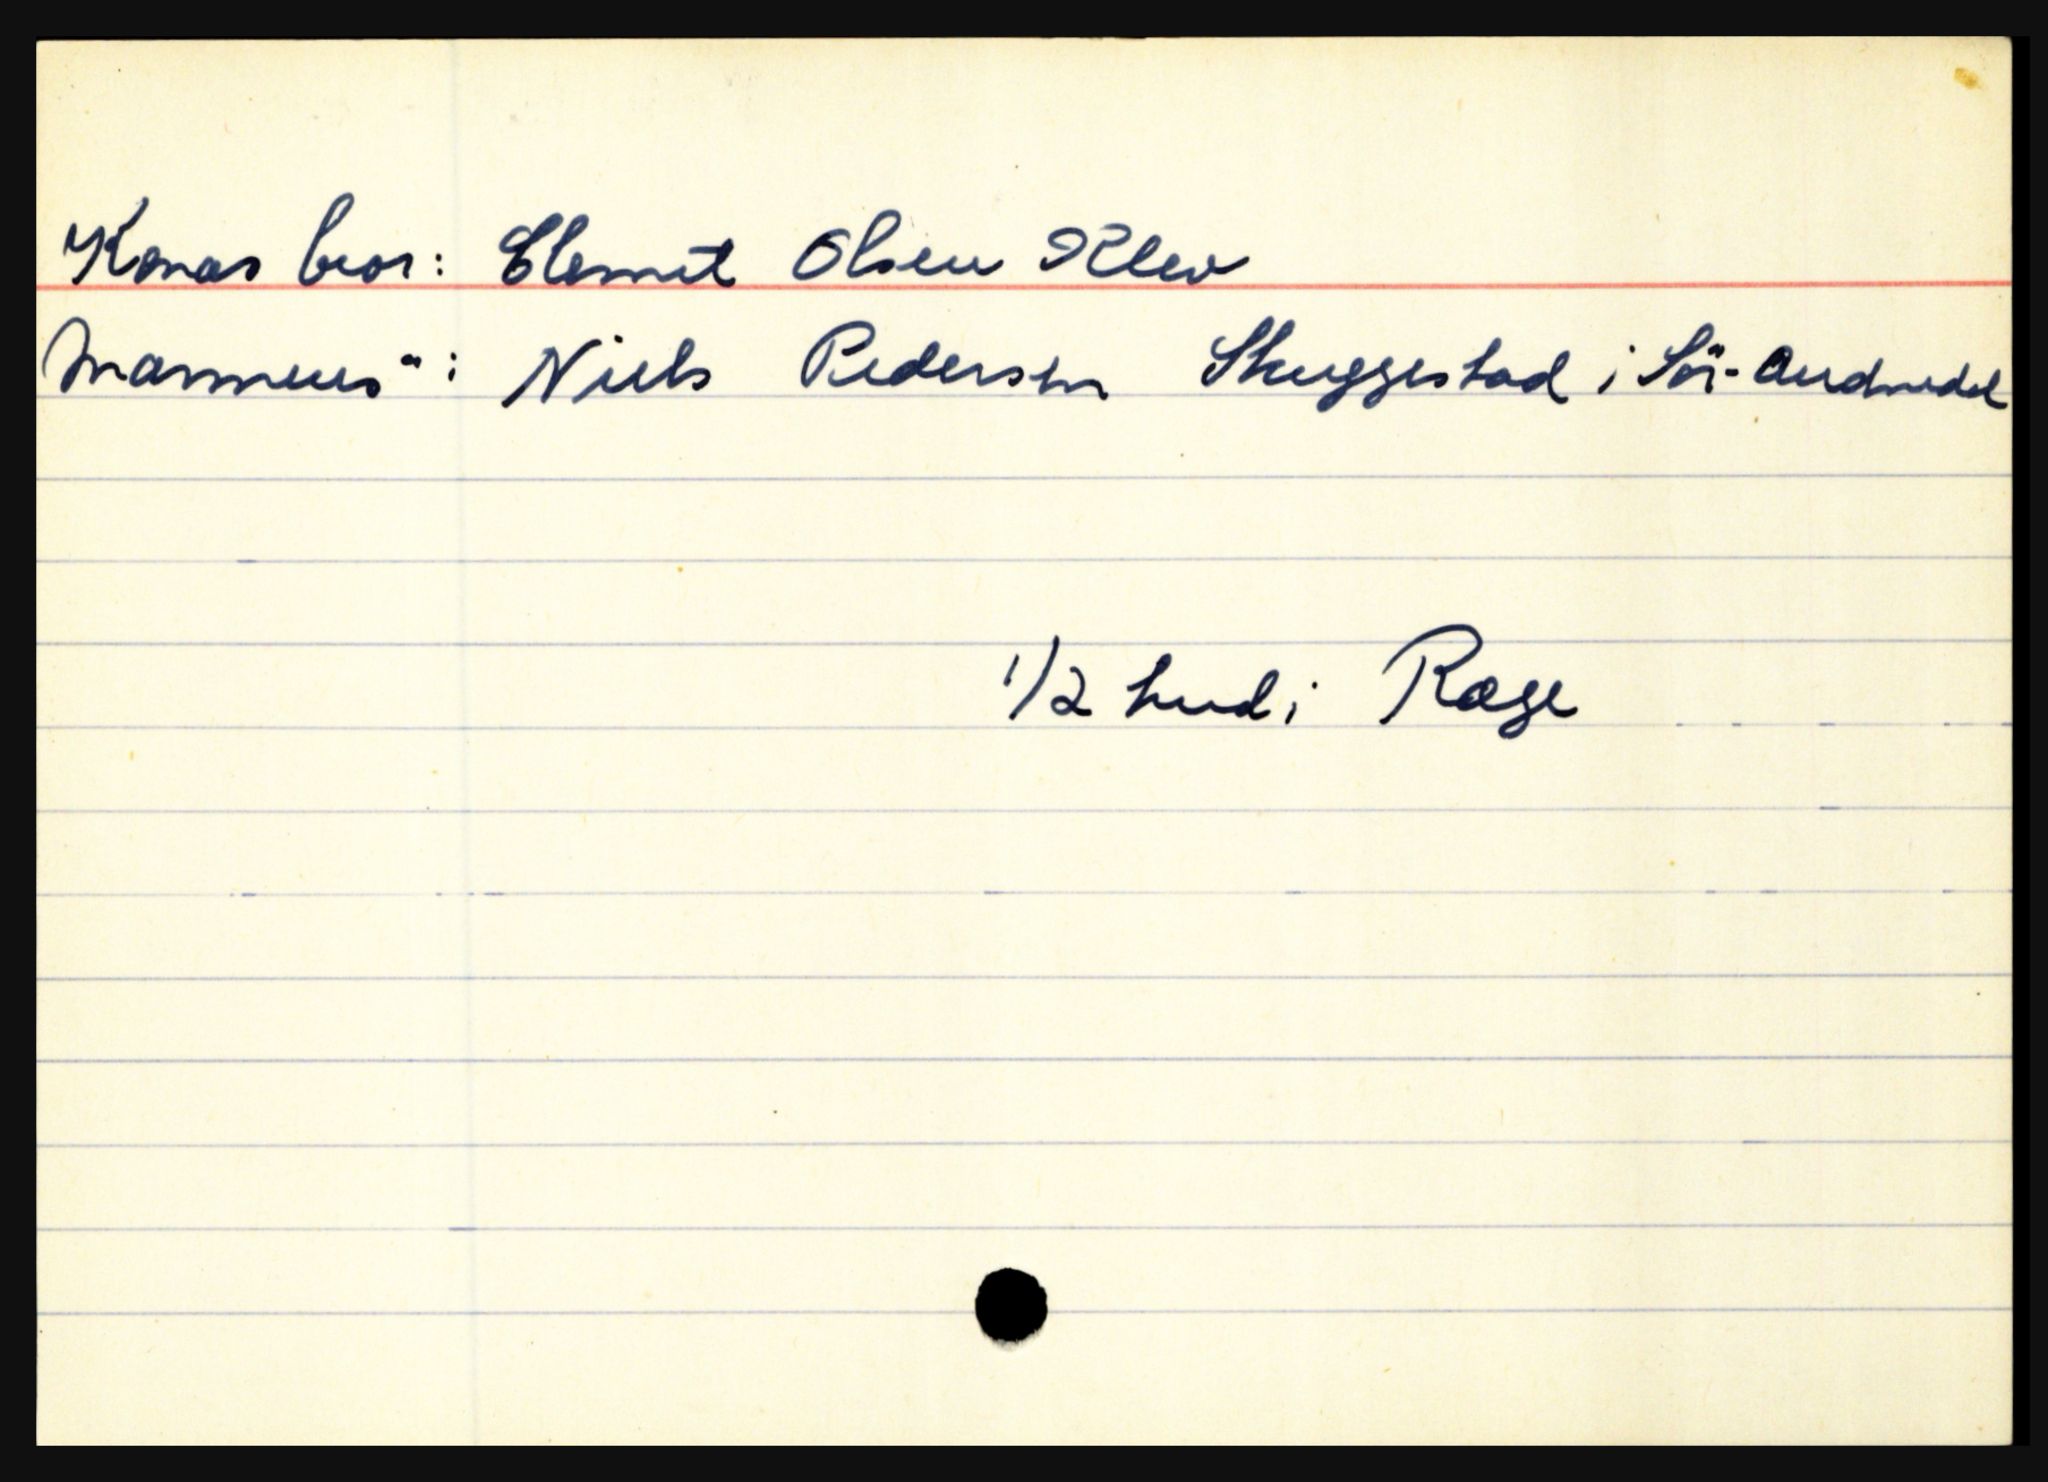 Konas bror: Clemet Olsen Klev
Mannens ": Niels Pedersen Skuggestad i Sör-Audnedal
1/2 hud i Roge